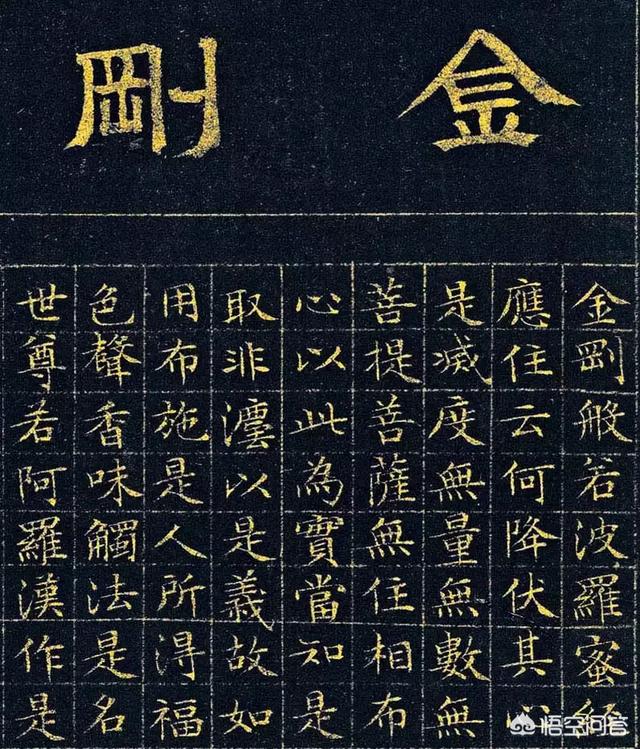 金剛
金剛般若波羅蜜經
應住云何降伏其心
是滅度無量無數無
菩提菩薩無住相布
心以此為實當知是
取非灋以是義故如
用布施是人所得福
色聲香味觸法是名
世尊若阿羅漢作是
悟空问答